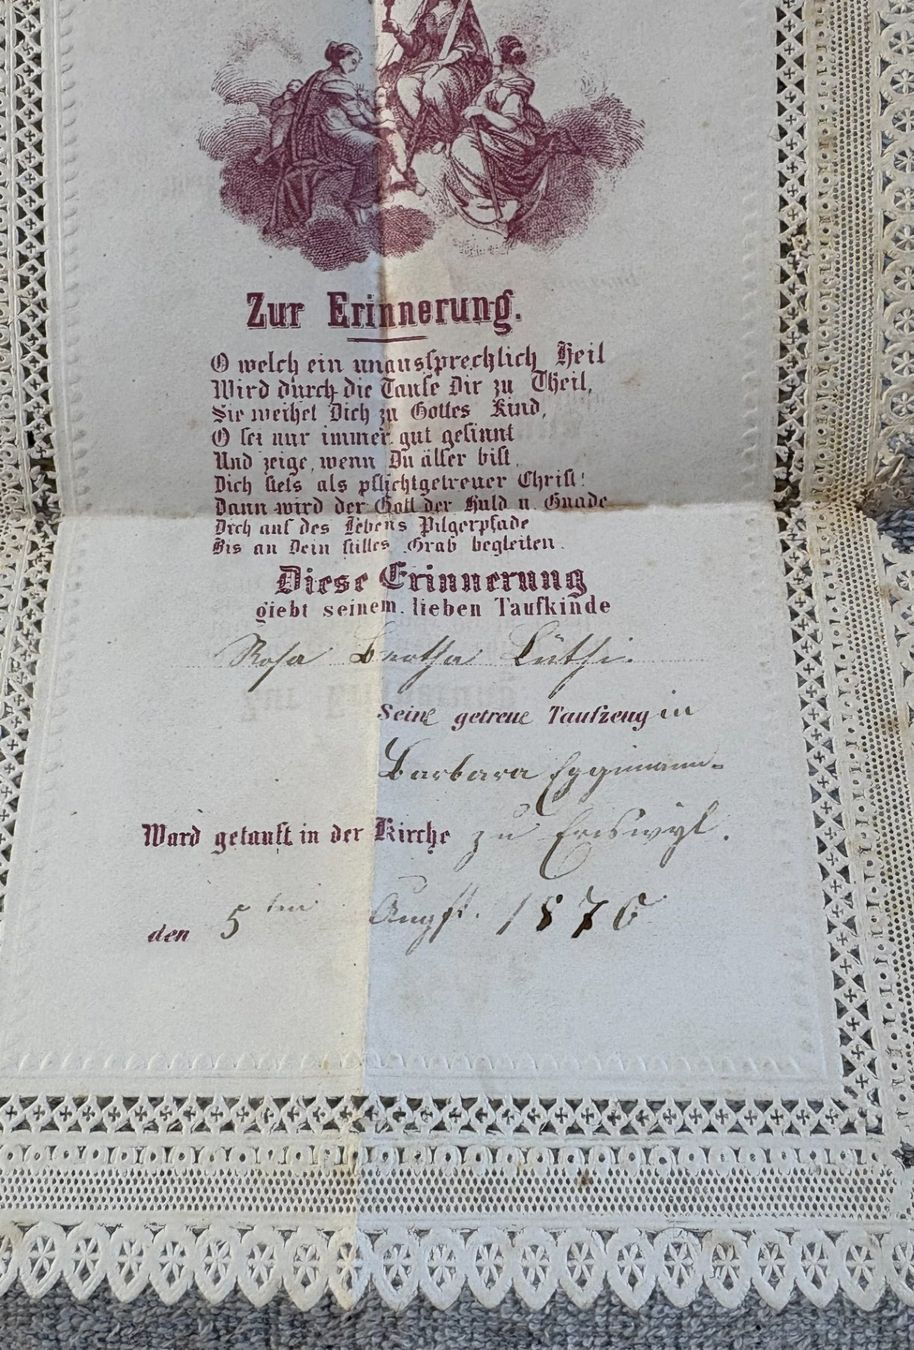 Zur Erinnerung.
O welch ein unaussprechlich Heil
Wird durch die Taufe Dir zu Theil,
Sie weihet Dich zu Gottes Kind,
O sei nur immer gut gesinnt
Und zeige, wenn Du älter bist
Dich stets als pflichtgetreuer Christ!
Dann wird der Gott der Huld u. Gnade
Dich auf des Lebens Pilgerpfade
Bis an Dein stilles Grab begleiten.
Diese Erinnerung
giebt seinem lieben Taufkinde
Rosa Lüthi.
Seine getreue Taufzeugin
Barbara Eggimann.
Ward getauft in der Kirche zu Eriswyl.
den 5ten Augst. 1876